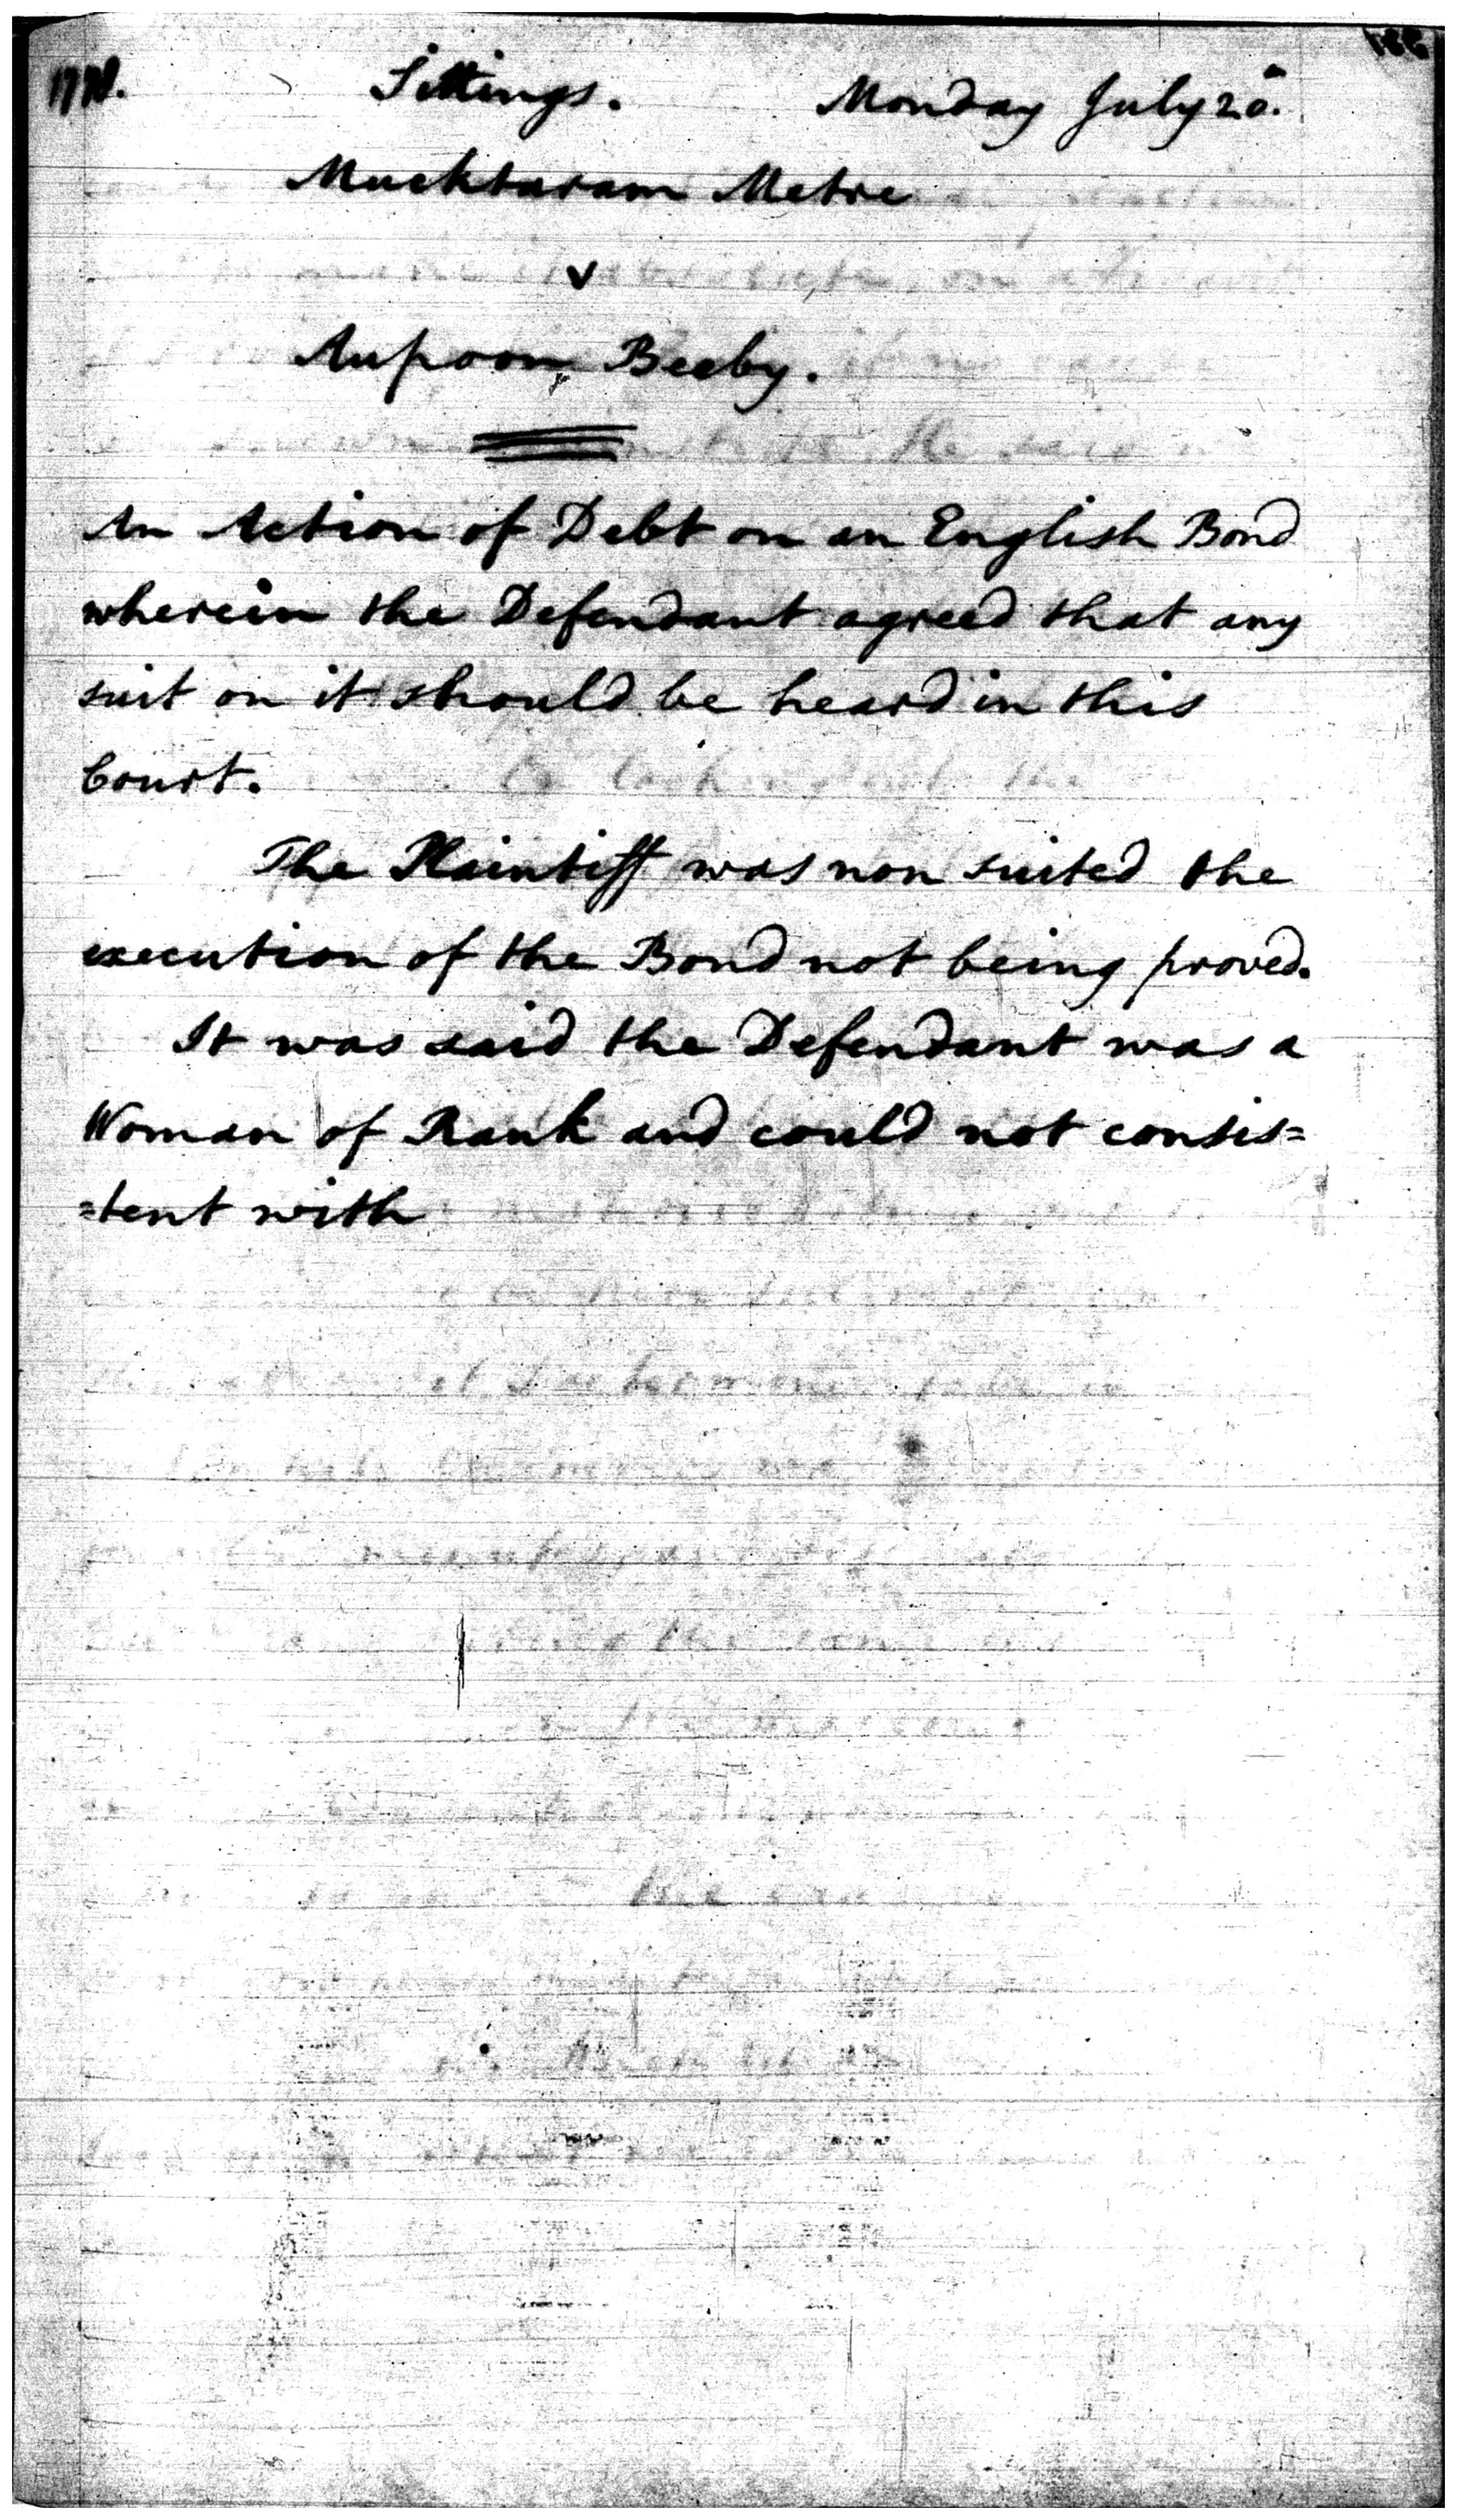 1778. Sittings. Monday July 20.
Mucktaram Metre
v
Aupoon Beeby.
An Action of Debt on an English Bond
wherein the Defendant agreed that any
suit on it should be heard in this
Court.
The Plaintiff was non suited the
execution of the Bond not being proved.
It was said the Defendant was a
Woman of Rank and could not consis=
=tent with